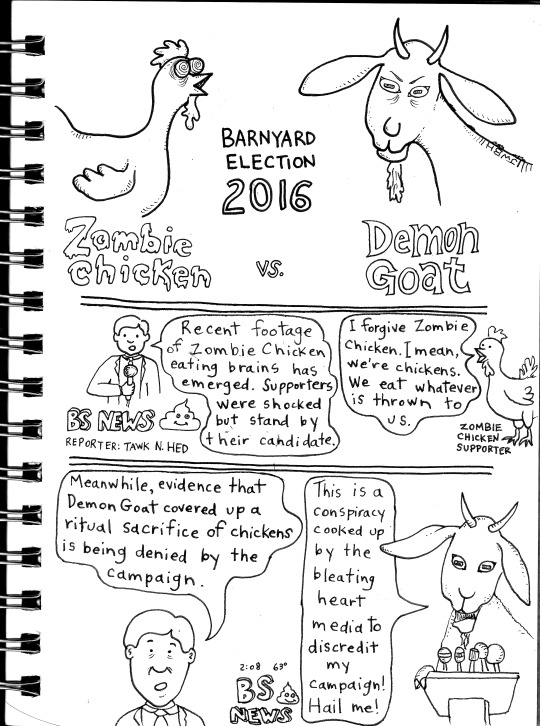 BARNYARD
ELECTION
2016
Zombie
Chicken
vs.
Demon
Goat
Recent footage
of Zombie Chicken
eating brains has
emerged. Supporters
were shocked
but stand by
their candidate.
BS NEWS
REPORTER: TAWK N. HED
I forgive Zombie
Chicken. I mean,
we're chickens.
We eat whatever
is thrown to
us.
ZOMBIE
CHICKEN
SUPPORTER
Meanwhile, evidence that
Demon Goat covered up a
ritual sacrifice of chickens
is being denied by the
campaign.
2:08 63°
BS
NEWS
This is a
conspiracy
cooked up
by the
bleating
heart
media to
discredit
my
campaign!
Hail me!